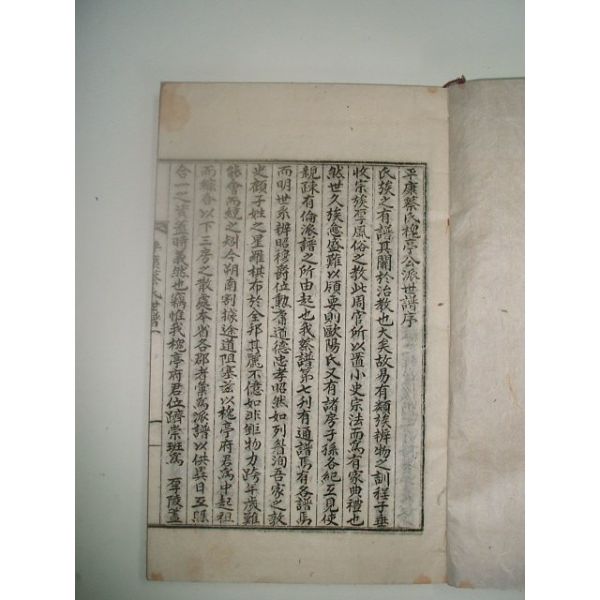 平康蔡氏槐亭公派世譜序
氏族之有譜其關於治教也大矣故易有類族辨物之訓程子垂
收宗族厚風俗之教此周官所以置小史宗法而爲有家典禮也
然世久族愈盛難以領要則歐陽氏又有諸房子孫各紀互見使
親踈有倫派譜之所由起也我蔡譜第七刋有道譜焉有各譜焉
而明世系辨昭穆爵位勳業道德忠孝昭然如列眉洵吾家之敦
史顧子姓之星羅棋布於全邦其麗不億如非鉅物力跨年歲難
能會両統之
今朔南割據途道阻塞玆以槐亭府君爲中起祖
而綜各以下三房之散處本省各郡者彙爲派譜以供異日互縣
合一之資盖時義然也竊惟我槐亭府君位躋崇班寓
至陵盖
平康蔡氏世譜